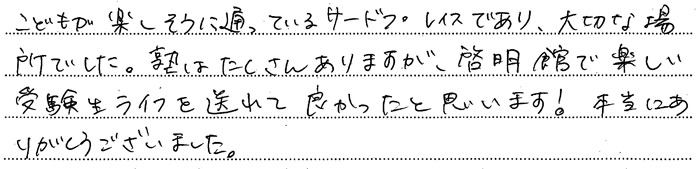 こどもが楽しそうに通っているサードプレイスであり、大切な場
所でした。塾はたくさんありますが、啓明館で楽しい
受験生ライフを送れて良かったと思います！本当にあ
りがとうございました。